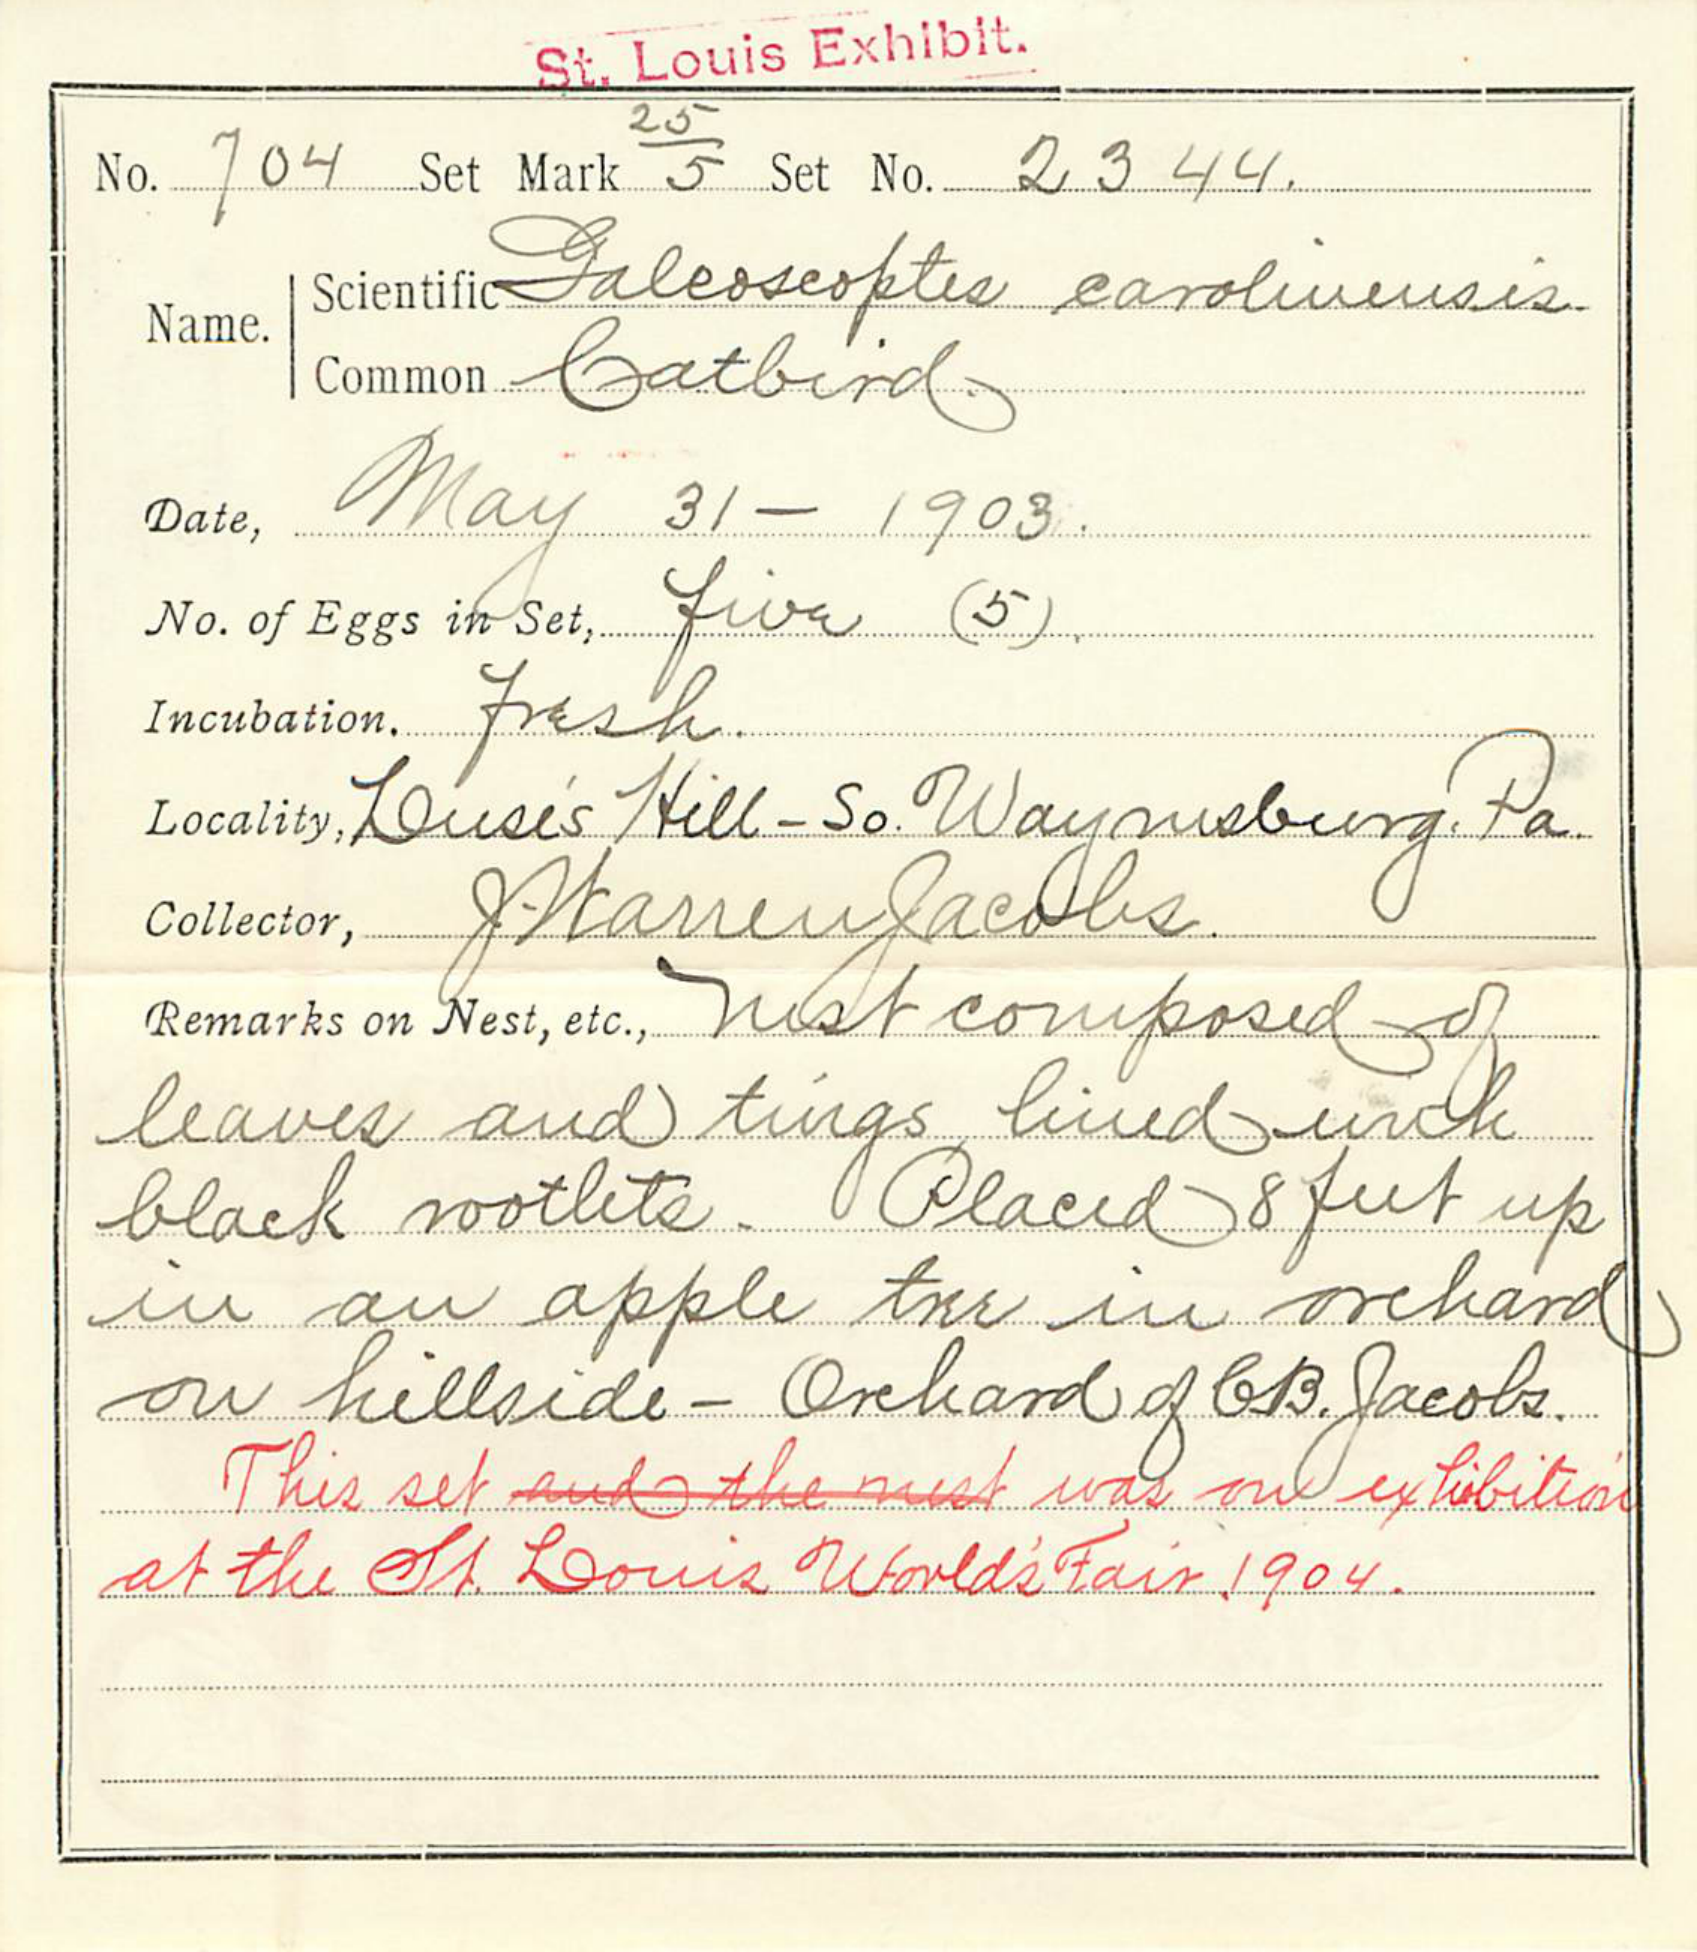 St. Louis Exhibit.
No. 704 Set Mark 25/5 Set No. 2344.
Name. Scientific Galeoscoptes carolinensis.
Common Catbird.
Date, May 31 – 1903.
No. of Eggs in Set, five (5).
Incubation. fresh.
Locality, Luse's Hill – So. Waynesburg. Pa.
Collector, J. Warren Jacobs.
Remarks on Nest, etc., Nest composed of
leaves and twigs, lined with
black rootlets. Placed 8 feet up
in an apple tree in orchard
on hillside – Orchard of C.B. Jacobs.
This set and the nest was on exhibition
at the St. Louis World's Fair, 1904.